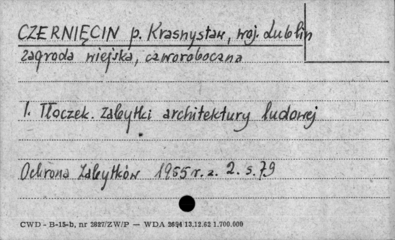 CZERNIĘCIN p. Krasnystaw, woj. Lublin
zagroda wiejska, czworoboczna
I. Tłoczek. Zabytki architektury ludowej
Ochrona Zabytków 1955 r. z. 2. s. 79
CWD - B-15-b, nr 2827/ZW/P — WDA 2644 13.12.62 1.700.000